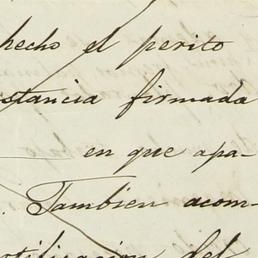 hecho el perito
stancia firmada
en que apa-
. Tambien acom-
tificacion del